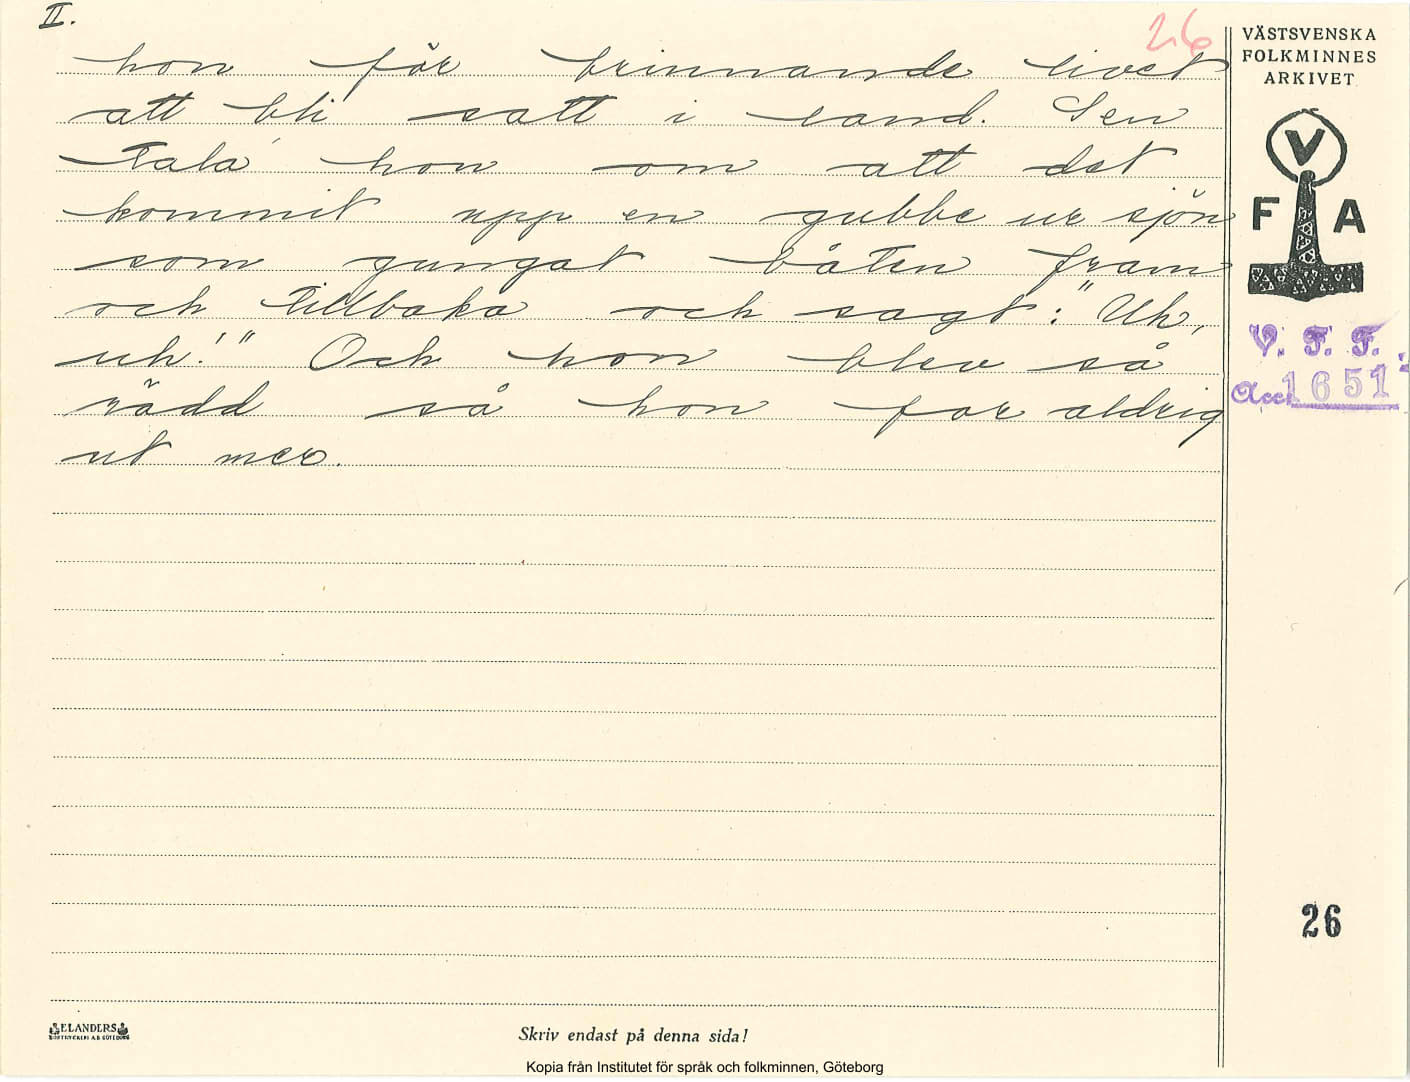 II.
26
hon för brinnande livet
att bli satt i land. Sen
tala' hon om att det
kommit upp en gubbe ur sjön
som gungat båten fram
och tillbaka och sagt: "Uh,
uh!" Och hon blev så
rädd så hon for aldrig
ut mer.
VÄSTSVENSKA
FOLKMINNES
ARKIVET
V
F A
V. F. F.
Acc. 1651
26
ELANDERS
BOKTRYCKERI A.B. GÖTEBORG
Skriv endast på denna sida!
Kopia från Institutet för språk och folkminnen, Göteborg